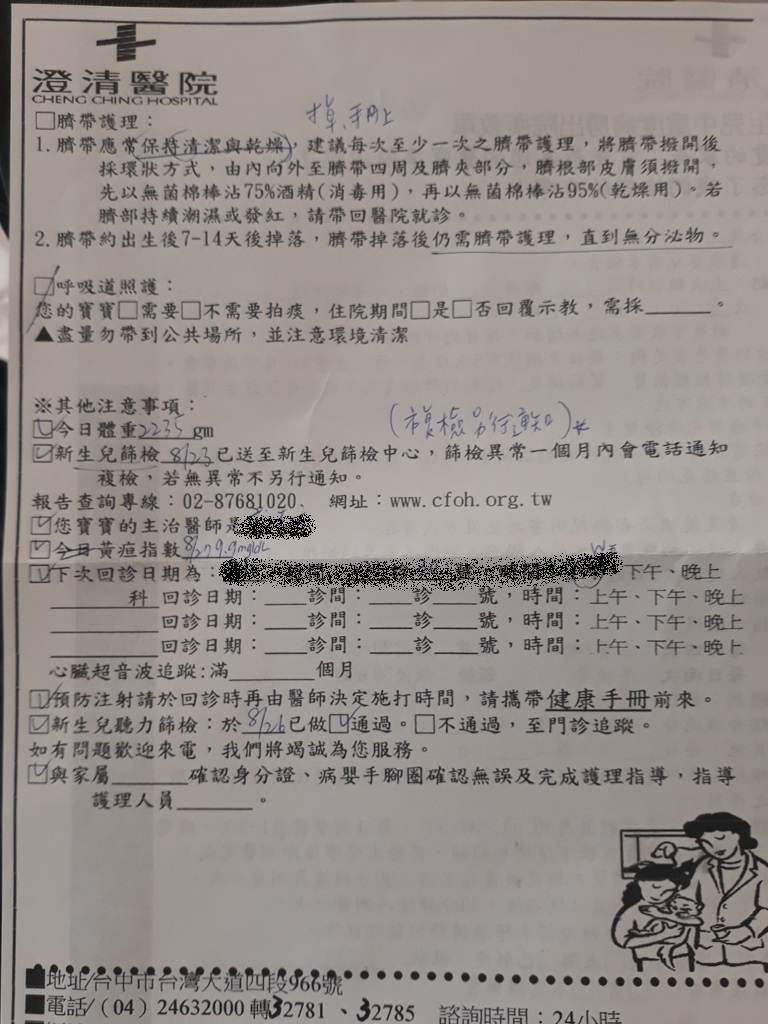 澄清醫院
CHENG CHING HOSPITAL
□臍帶護理：
1. 臍帶應常保持清潔與乾燥，建議每次至少一次之臍帶護理，將臍帶撥開後
採環狀方式，由內向外至臍帶四周及臍夾部分，臍根部皮膚須撥開，
先以無菌棉棒沾75%酒精(消毒用)，再以無菌棉棒沾95%(乾燥用)。若
臍部持續潮濕或發紅，請帶回醫院就診。
2. 臍帶約出生後7-14天後掉落，臍帶掉落後仍需臍帶護理，直到無分泌物。
□呼吸道照護：
您的寶寶□需要□不需要拍痰，住院期間□是□否回覆示教，需採______。
▲盡量勿帶到公共場所，並注意環境清潔
※其他注意事項：
☑今日體重2235gm
(複檢另行通知)*
☑新生兒篩檢 8/23已送至新生兒篩檢中心，篩檢異常一個月內會電話通知
複檢，若無異常不另行通知。
報告查詢專線：02-87681020. 網址：www.cfoh.org.tw
☑您寶寶的主治醫師是
☑今日黃疸指數8/27 9.9mg/dL
☑下次回診日期為： 下午、晚上
______科 回診日期：____診間：____診____號，時間：上午、下午、晚上
________ 回診日期：____診間：____診____號，時間：上午、下午、晚上
________ 回診日期：____診間：____診____號，時間：上午、下午、晚上
心臟超音波追蹤:滿________個月
☑預防注射請於回診時再由醫師決定施打時間，請攜帶健康手冊前來。
☑新生兒聽力篩檢：於 8/26 已做☑通過。□不通過，至門診追蹤。
如有問題歡迎來電，我們將竭誠為您服務。
☑與家屬_______確認身分證、病嬰手腳圈確認無誤及完成護理指導，指導
護理人員_______。
■地址/台中市台灣大道四段966號
■電話/（04）24632000 轉32781、32785 諮詢時間：24小時